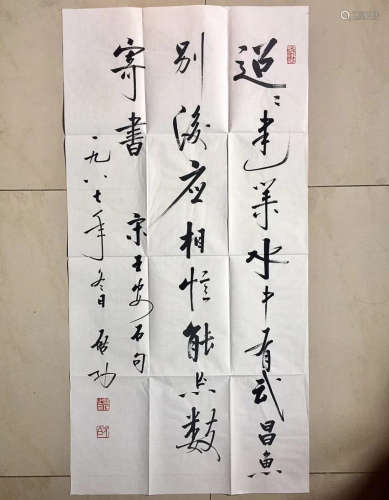 迢迢建业水中有武昌鱼
别後应相忆能忘数
寄書
宋王安石句
一九八七年冬日 启功